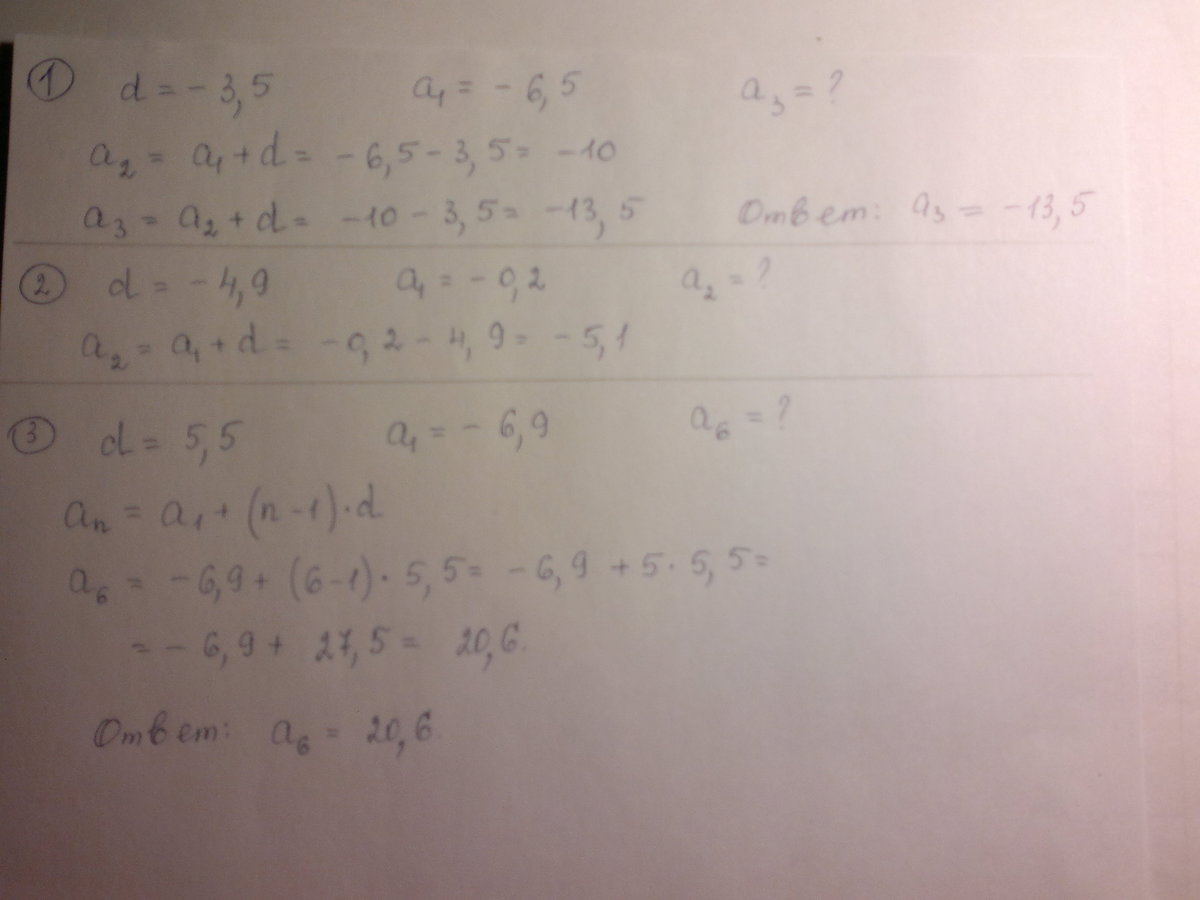 ① d = - 3,5 a₁ = - 6,5 a₃ = ?
a₂ = a₁ + d = - 6,5 - 3,5 = -10
a₃ = a₂ + d = -10 - 3,5 = -13,5 Ответ: a₃ = -13,5
② d = - 4,9 a₁ = - 0,2 a₂ = ?
a₂ = a₁ + d = -0,2 - 4,9 = - 5,1
③ d = 5,5 a₁ = - 6,9 a₆ = ?
aₙ = a₁ + (n - 1) · d
a₆ = - 6,9 + (6-1) · 5,5 = - 6,9 + 5 · 5,5 =
= - 6,9 + 27,5 = 20,6.
Ответ: a₆ = 20,6.